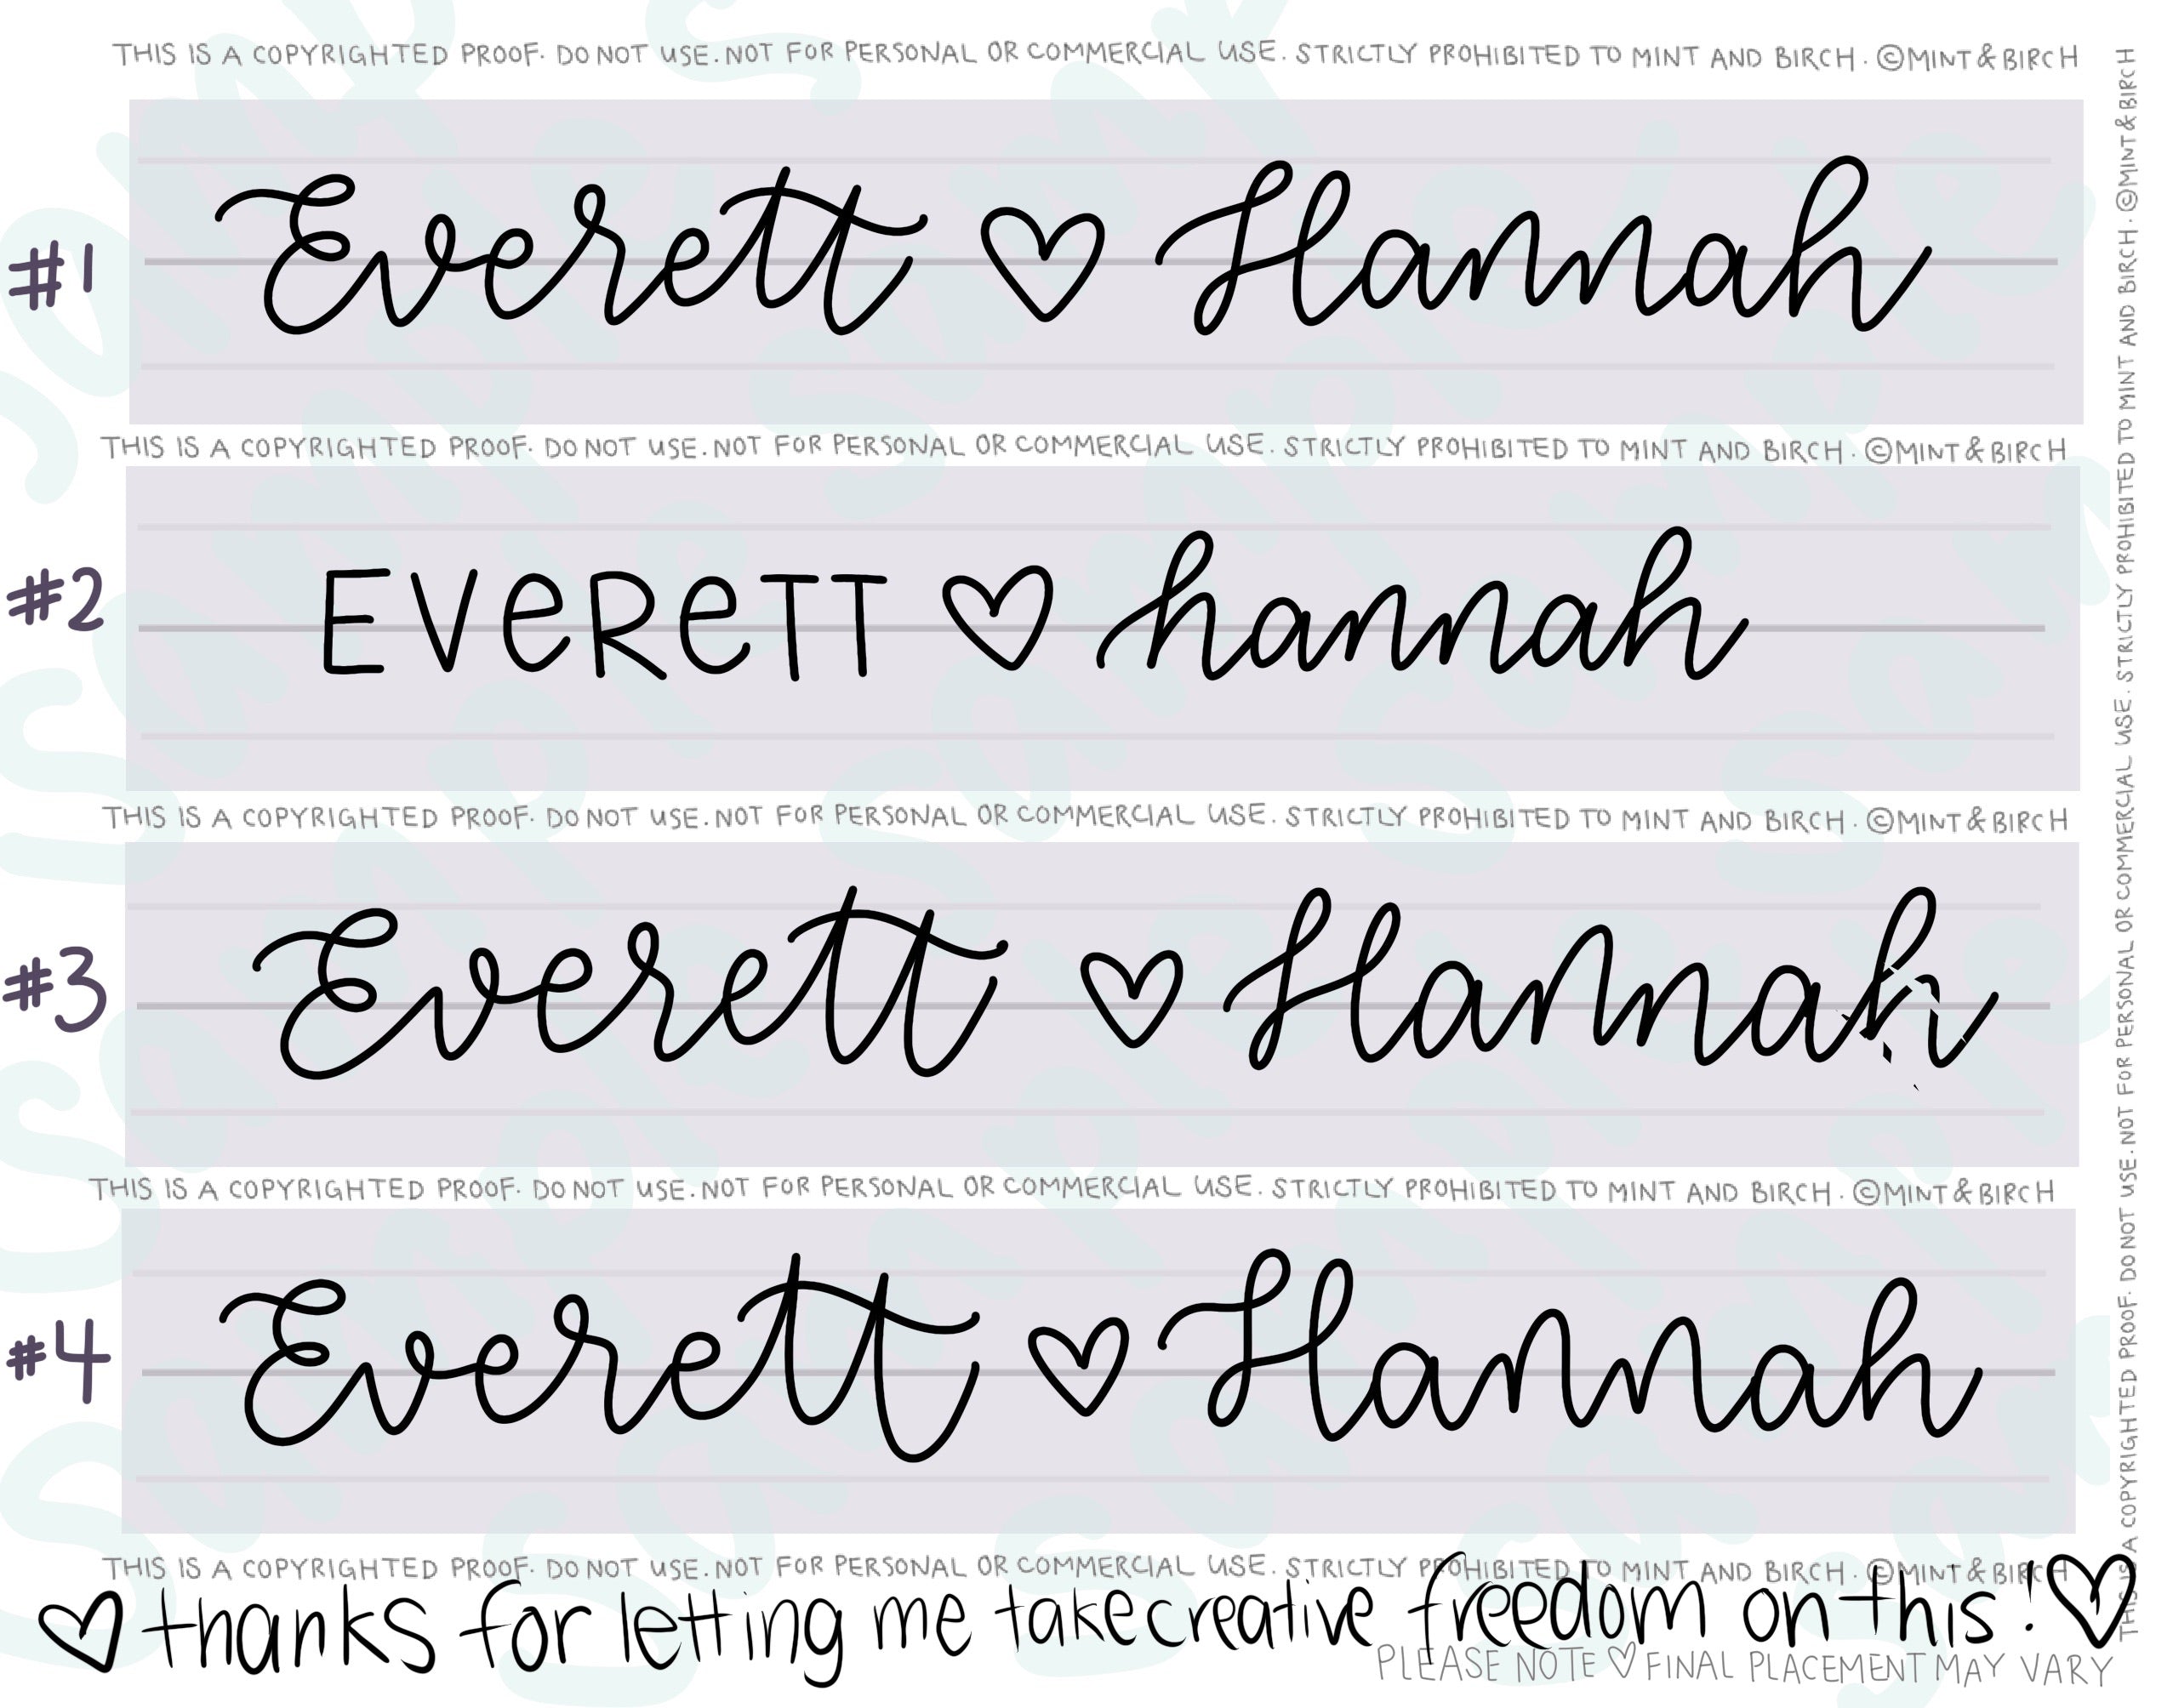 THIS IS A COPYRIGHTED PROOF. DO NOT USE. NOT FOR PERSONAL OR COMMERCIAL USE. STRICTLY PROHIBITED TO MINT AND BIRCH. ©MINT&BIRCH
#1 Everett ♡ Hannah
THIS IS A COPYRIGHTED PROOF. DO NOT USE. NOT FOR PERSONAL OR COMMERCIAL USE. STRICTLY PROHIBITED TO MINT AND BIRCH. ©MINT&BIRCH
#2 EVeReTT ♡ hannah
THIS IS A COPYRIGHTED PROOF. DO NOT USE. NOT FOR PERSONAL OR COMMERCIAL USE. STRICTLY PROHIBITED TO MINT AND BIRCH. ©MINT&BIRCH
#3 Everett ♡ Hannah
THIS IS A COPYRIGHTED PROOF. DO NOT USE. NOT FOR PERSONAL OR COMMERCIAL USE. STRICTLY PROHIBITED TO MINT AND BIRCH. ©MINT&BIRCH
#4 Everett ♡ Hannah
THIS IS A COPYRIGHTED PROOF. DO NOT USE. NOT FOR PERSONAL OR COMMERCIAL USE. STRICTLY PROHIBITED TO MINT AND BIRCH. ©MINT&BIRCH
♡ thanks for letting me take creative freedom on this! ♡
PLEASE NOTE ♡ FINAL PLACEMENT MAY VARY
THIS IS A COPYRIGHTED PROOF. DO NOT USE. NOT FOR PERSONAL OR COMMERCIAL USE. STRICTLY PROHIBITED TO MINT AND BIRCH. ©MINT&BIRCH